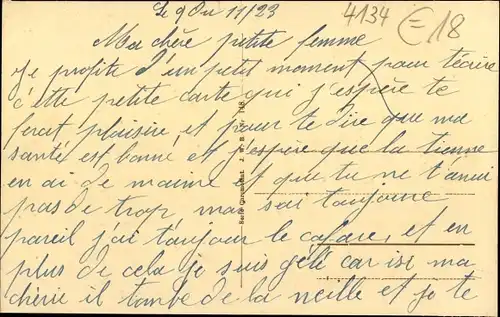 Le 9 Ou 11/23
4134 E18
Ma chère petite femme
Je profite d'un petit moment pour t'écrire
c'ette petite carte qui j'espère te
ferat plaisire et pour te dire que ma
santé est bonne et j'espère que la tienne
en ai de maime et que tu ne t'anui
pas de trop, moi sai toujoure
pareil j'ai toujour le cafare, et en
plus de cela je suis gélé car isi ma
chérie il tonbe de la neille et je te